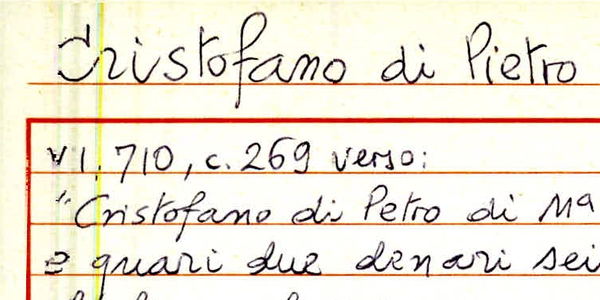 Cristofano di Pietro
v 1. 710, c. 269 verso:
"Cristofano di Petro di Ma
e quari due denari sei